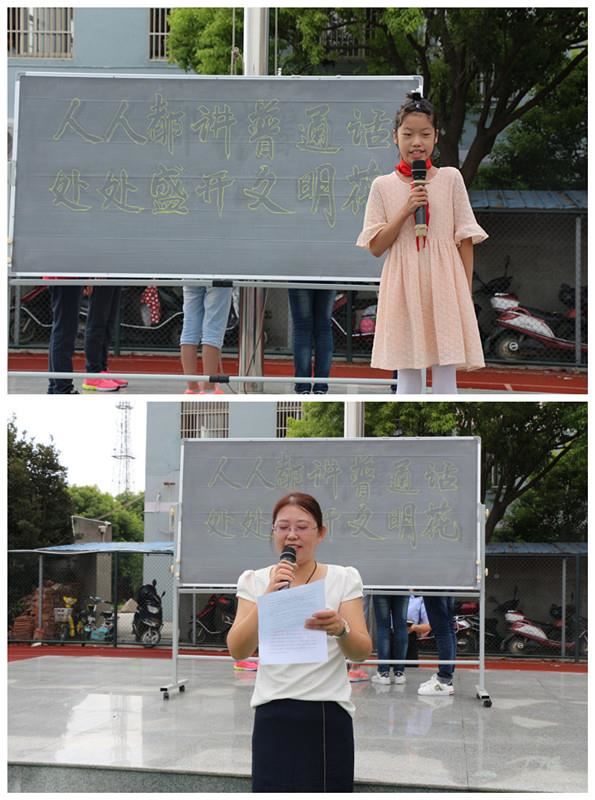 人人都讲普通话
处处盛开文明花
人人都讲普通话
处处开文明花